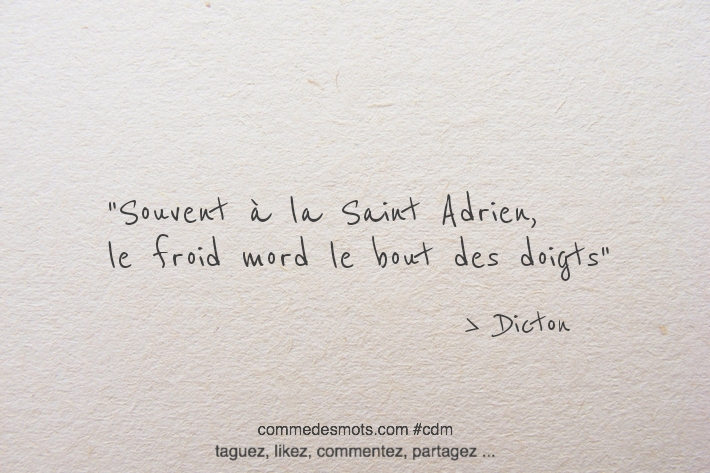 "Souvent à la Saint Adrien,
le froid mord le bout des doigts"
> Dicton
commedesmots.com #cdm
taguez, likez, commentez, partagez ...